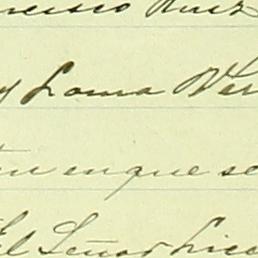 ncisco Ruiz
y Loma Var
en que se
El Señor Lice